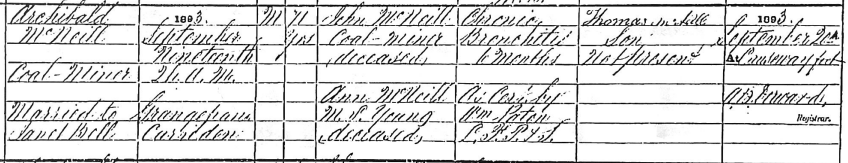 Archibald
McNeill
Coal-Miner
Married to
Janet Bell
1893.
September
Nineteenth
2h. A.M.
Grangepans
Carriden
M
71
Yrs
John McNeill
Coal-miner
deceased,
Ann McNeill
M. S. Young
deceased,
Chronic
Bronchitis
6 months
As Cert. by
Wm
L. F. P. & S.
Thomas McNeill
Son
Not present
1893.
September 20th
At Causewayfoot
A.B. Edwards,
Registrar.